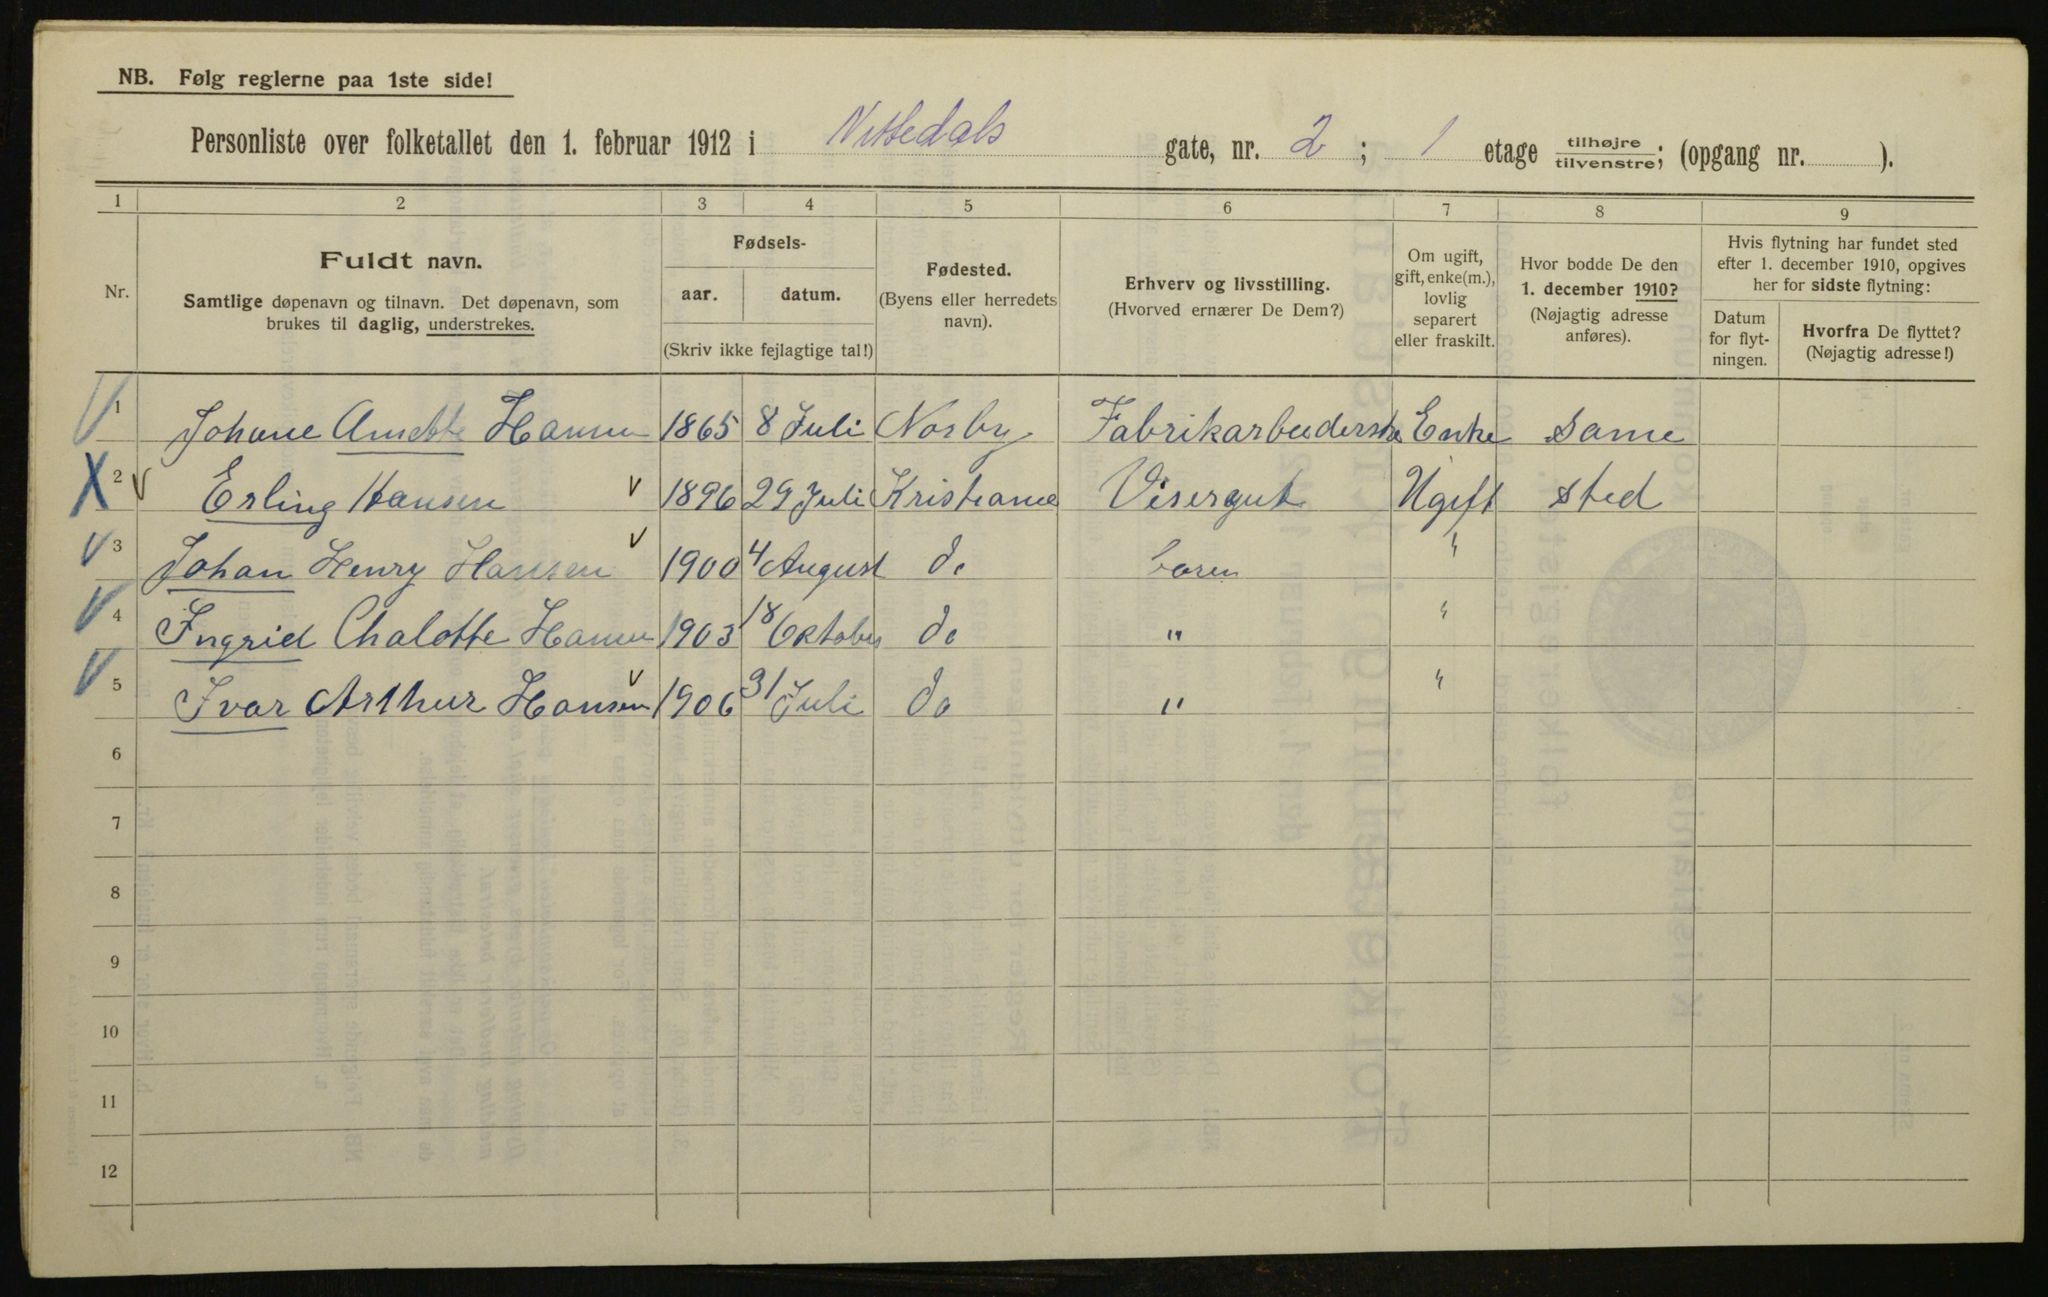 NB. Følg reglerne paa 1ste side!
Personliste over folketallet den 1. februar 1912 i Nittedals gate, nr. 2 ; 1 etage tilhøjre tilvenstre; (opgang nr. ).
1 2 3 4 5 6 7 8 9
Nr.
Fuldt navn.
Samtlige døpenavn og tilnavn. Det døpenavn, som
brukes til daglig, understrekes.
Fødsels-
aar. datum.
(Skriv ikke fejlagtige tal!)
Fødested.
(Byens eller herredets
navn).
Erhverv og livsstilling.
(Hvorved ernærer De Dem?)
Om ugift,
gift, enke(m.),
lovlig
separert
eller fraskilt.
Hvor bodde De den
1. december 1910?
(Nøjagtig adresse
anføres).
Hvis flytning har fundet sted
efter 1. december 1910, opgives
her for sidste flytning:
Datum
for flyt-
ningen.
Hvorfra De flyttet?
(Nøjagtig adresse!)
1 Johane Anette Hansen 1865 8 Juli Norby Fabrikarbeiderske Enke Same
2 Erling Hansen 1896 29 Juli Kristiania Visergut Ugift sted
3 Johan Henry Hansen 1900 4 August do "
4 Ingrid Chalotte Hansen 1903 18 Oktober do " "
5 Ivar Arthur Hansen 1906 31 Juli do " "
6
7
8
9
10
11
12